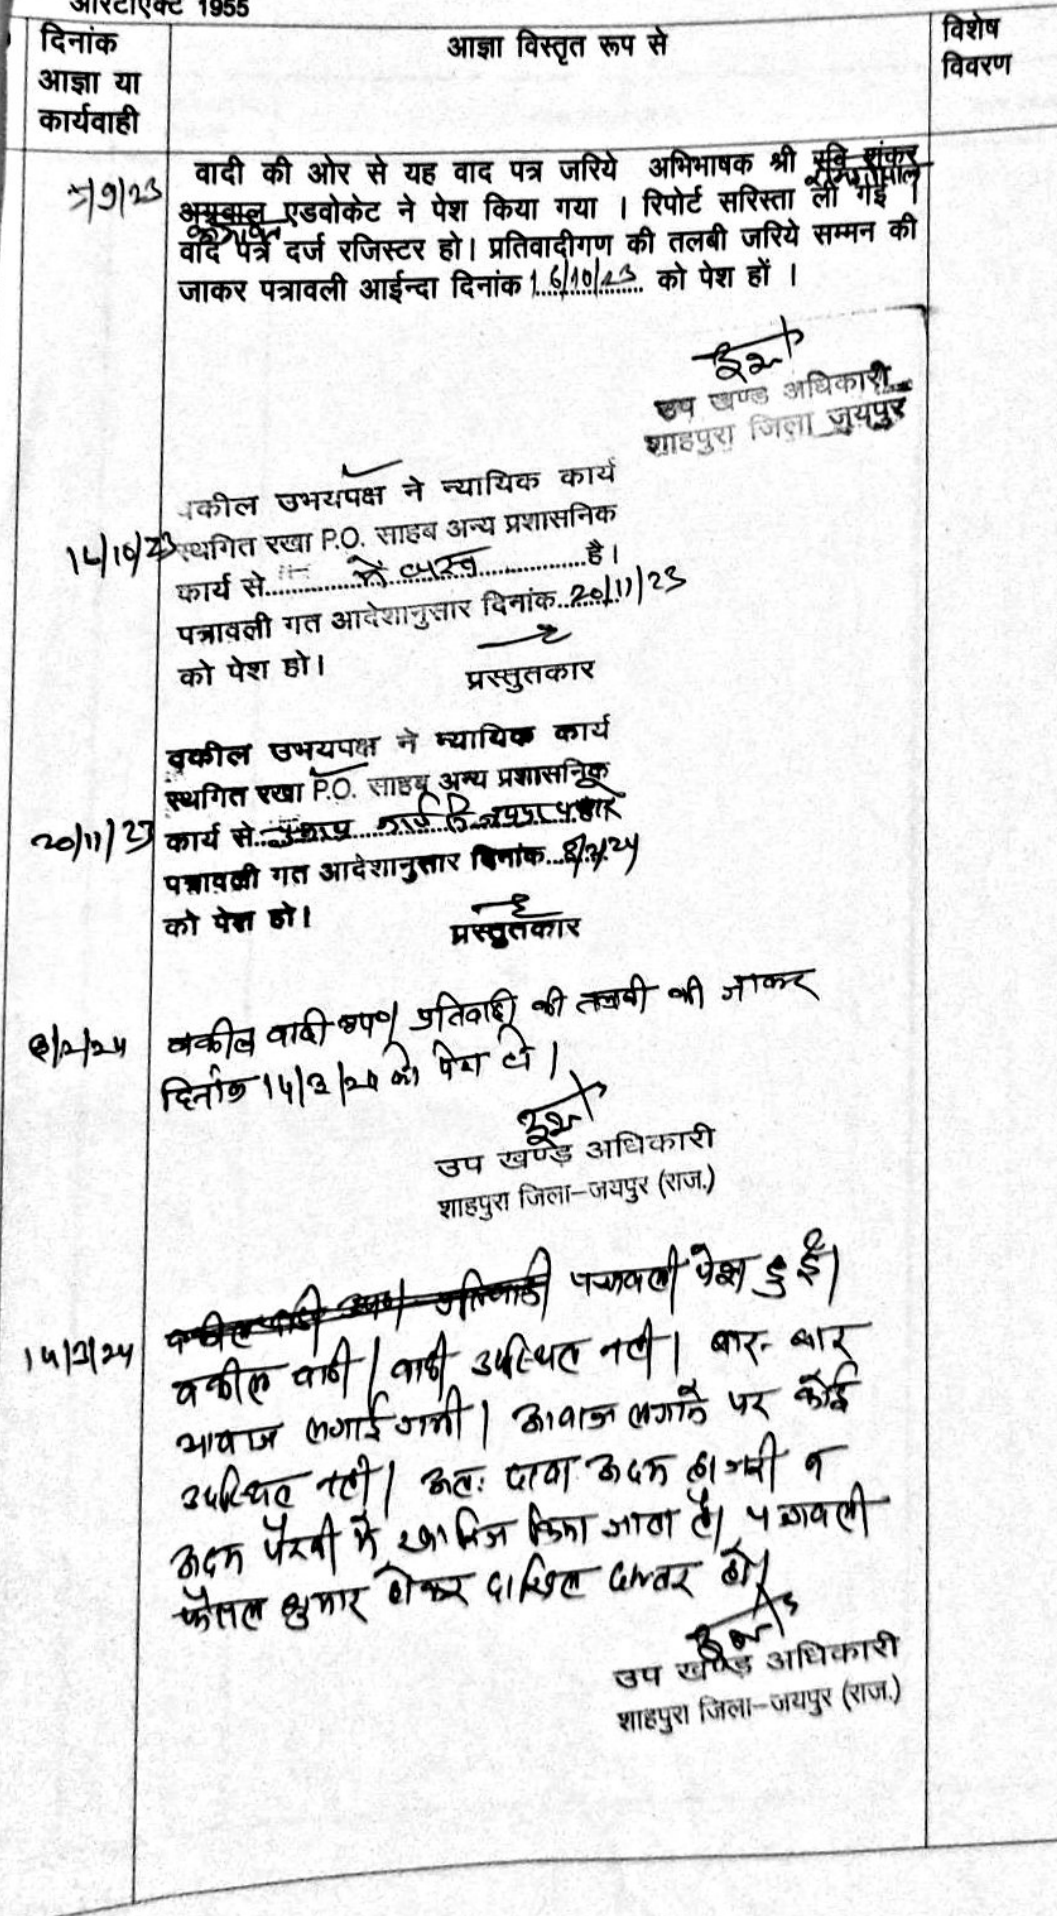 आरटीएक्ट 1955
दिनांक
आज्ञा या
कार्यवाही
आज्ञा विस्तृत रूप से
विशेष
विवरण
वादी की ओर से यह वाद पत्र जरिये अभिभाषक श्री रवि शंकर
/9/23
अग्रवाल एडवोकेट ने पेश किया गया । रिपोर्ट सरिस्ता ली गई ।
वाद पत्र दर्ज रजिस्टर हो। प्रतिवादीगण की तलबी जरिये सम्मन की
जाकर पत्रावली आईन्दा दिनांक 16/10/23 को पेश हों ।
उप खण्ड अधिकारी
शाहपुरा जिला जयपुर
वकील उभयपक्ष ने न्यायिक कार्य
स्थगित रखा P.O. साहब अन्य प्रशासनिक
कार्य से.......में व्यस्त.......है।
पत्रावली गत आदेशानुसार दिनांक..20/11/23
को पेश हो।
प्रस्तुतकार
वकील उभयपक्ष ने न्यायिक कार्य
स्थगित रखा P.O. साहब अन्य प्रशासनिक
20/11/23
कार्य से..
पत्रावली गत आदेशानुसार दिनांक...8/2/24
को पेश हो।
प्रस्तुतकार
8/2/24
वकील वादी उप० प्रतिवादी की तलबी की जाकर
दिनांक 14/3/24 को पेश हो।
उप खण्ड अधिकारी
शाहपुरा जिला-जयपुर (राज.)
वकील वादी उप० प्रतिवादी पत्रावली पेश हुई।
14/3/24
वकील वादी/वादी उपस्थित नही। बार-बार
आवाज लगाई गयी। आवाज लगाने पर कोई
उपस्थित नही। अतः दावा अदम हाजरी व
अदम पैरवी में खारिज किया जाता है। पत्रावली
फैसल शुमार होकर दाखिल दफ्तर हो।
उप खण्ड अधिकारी
शाहपुरा जिला-जयपुर (राज.)